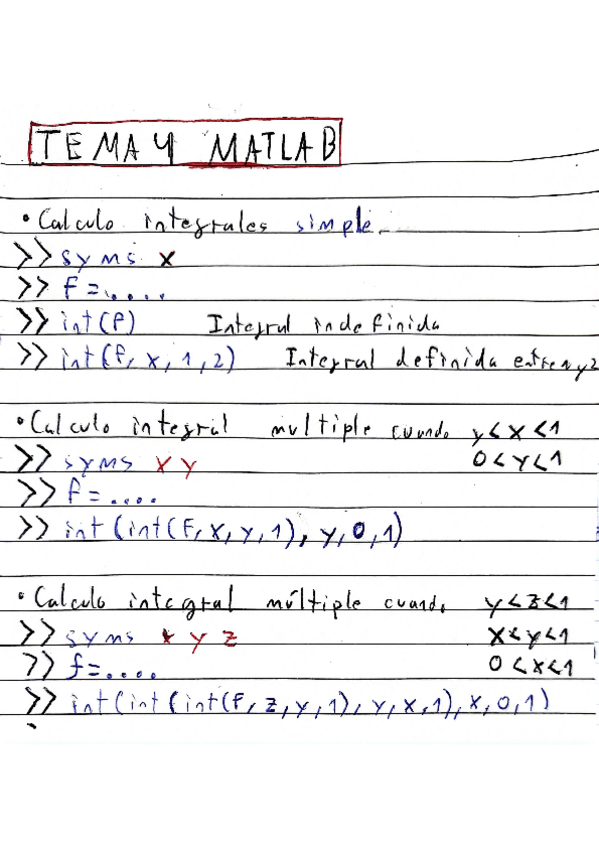 TEMA 4 MATLAB
• Calculo integrales simple.
>> syms x
>> f = .....
>> int(f) Integral indefinida
>> int(f, x, 1, 2) Integral definida entre 1 y 2
• Calculo integral multiple cuando y < x < 1
>> syms x y 0 < y < 1
>> f = ....
>> int(int(f, x, y, 1), y, 0, 1)
• Calculo integral múltiple cuando y < z < 1
>> syms x y z x < y < 1
>> f = .... 0 < x < 1
>> int(int(int(f, z, y, 1), y, x, 1), x, 0, 1)